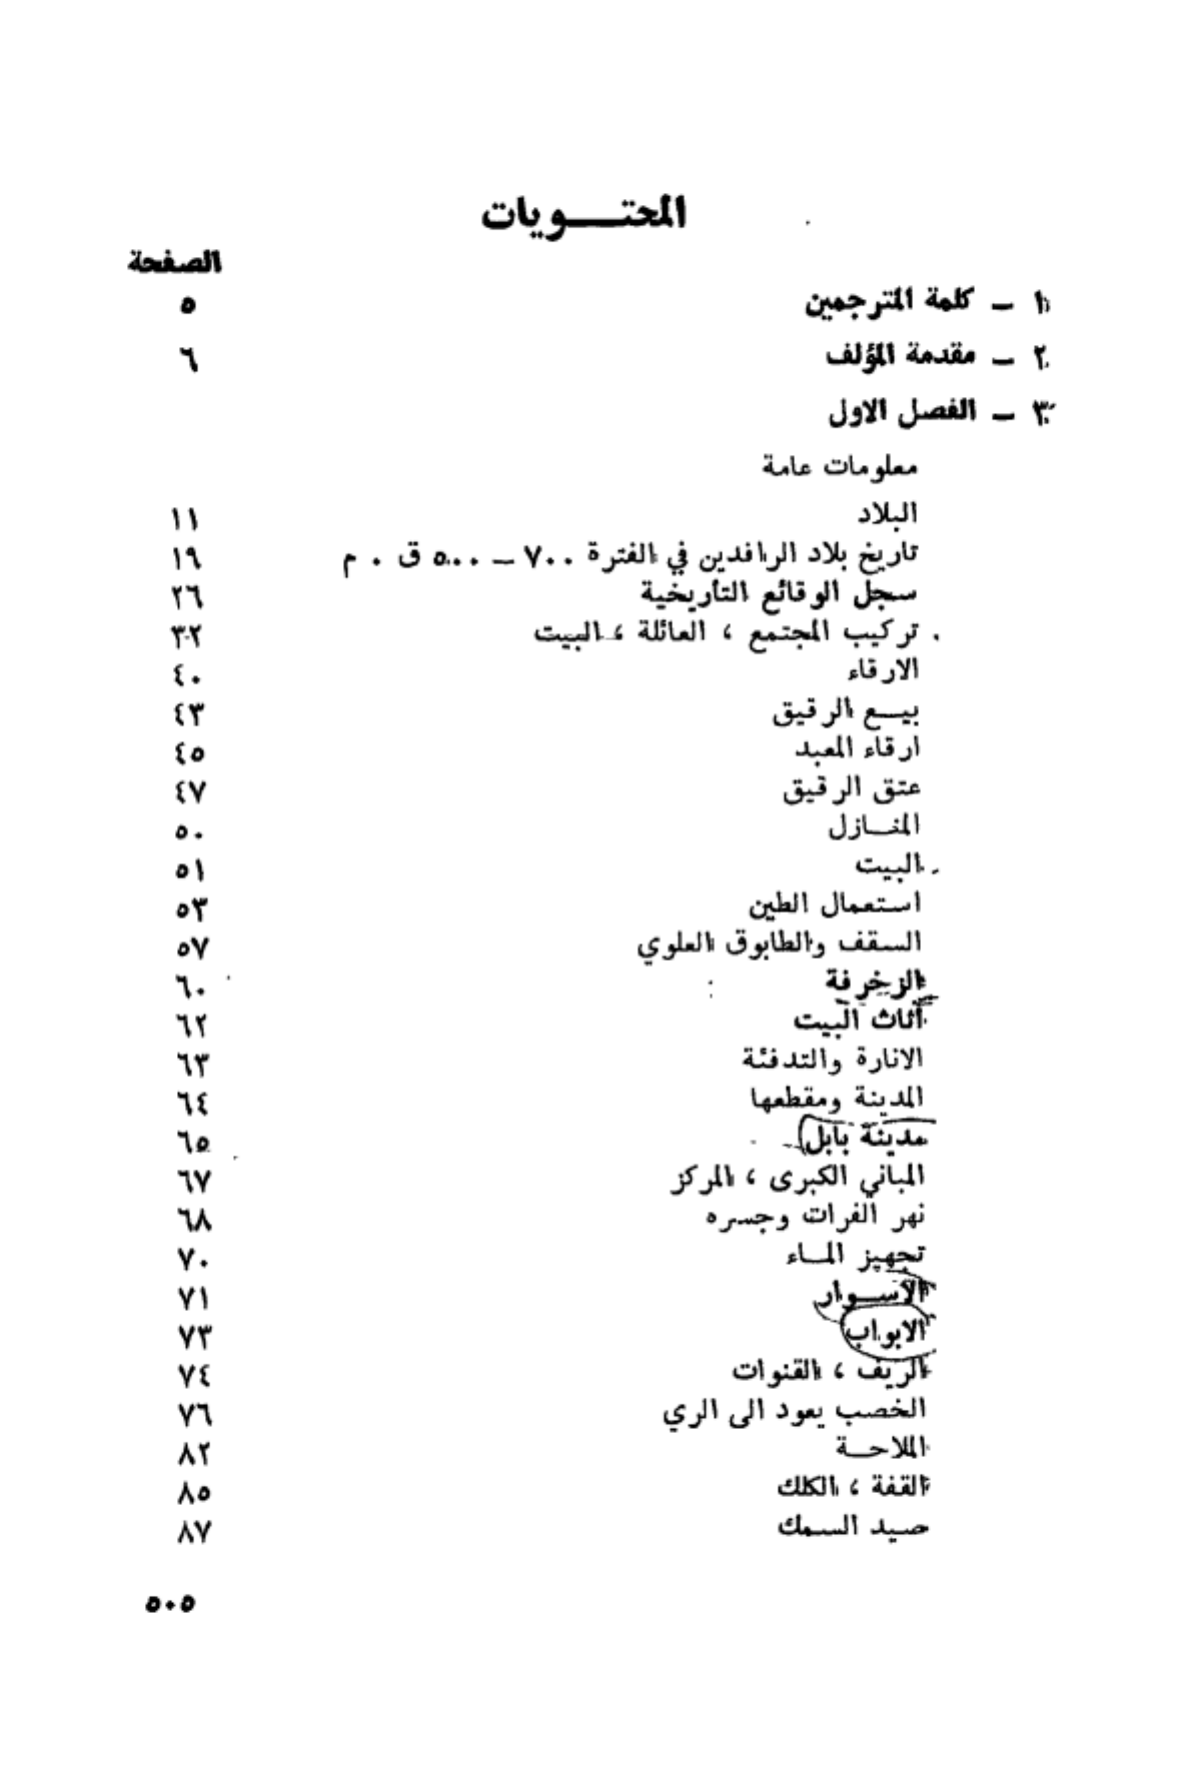 المحتـــويات
الصفحة
١ ـ كلمة المترجمين ٥
٢ ـ مقدمة المؤلف ٦
٣ ـ الفصل الاول
معلومات عامة
البلاد ١١
تاريخ بلاد الرافدين في الفترة ٧٠٠ ـ ٥٠٠ ق ٠ م ١٩
سجل الوقائع التأريخية ٢٦
تركيب المجتمع ، العائلة ، البيت ٣٢
الارقاء ٤٠
بيـــع الرقيق ٤٣
ارقاء المعبد ٤٥
عتق الرقيق ٤٧
المنـــازل ٥٠
البيت ٥١
استعمال الطين ٥٣
السقف والطابوق العلوي ٥٧
الزخرفة ٦٠
أثاث البيت ٦٢
الانارة والتدفئة ٦٣
المدينة ومقطعها ٦٤
مدينة بابل ٦٥
المباني الكبرى ، المركز ٦٧
نهر الفرات وجسره ٦٨
تجهيز المـــاء ٧٠
الاســـوار ٧١
الابواب ٧٣
الريف ، القنوات ٧٤
الخصب يعود الى الري ٧٦
الملاحـــة ٨٢
القفة ، الكلك ٨٥
صيد السمك ٨٧
٥٠٥